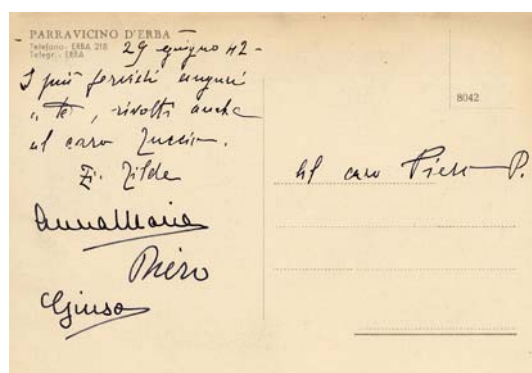 PARRAVICINO D'ERBA
Telefono - ERBA 218
Telegr. - ERBA
29 giugno 42 -
I più fervidi auguri
a Te, rivolti anche
al caro
Zi. Zilde
AnnaMaria
Piero
Giusa
8042
Al caro Piero P.